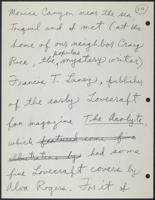 Monica Canyon near the sea
Trequil and I met (at the
home of our neighbor Craig
Rice, the mystery writer)
Francis T. Laney, publisher
of the early Lovecraft
fan magazine The Acolyte,
which featured some fine
illustration by had some
fine Lovecraft covers by
Alva Rogers. For it of